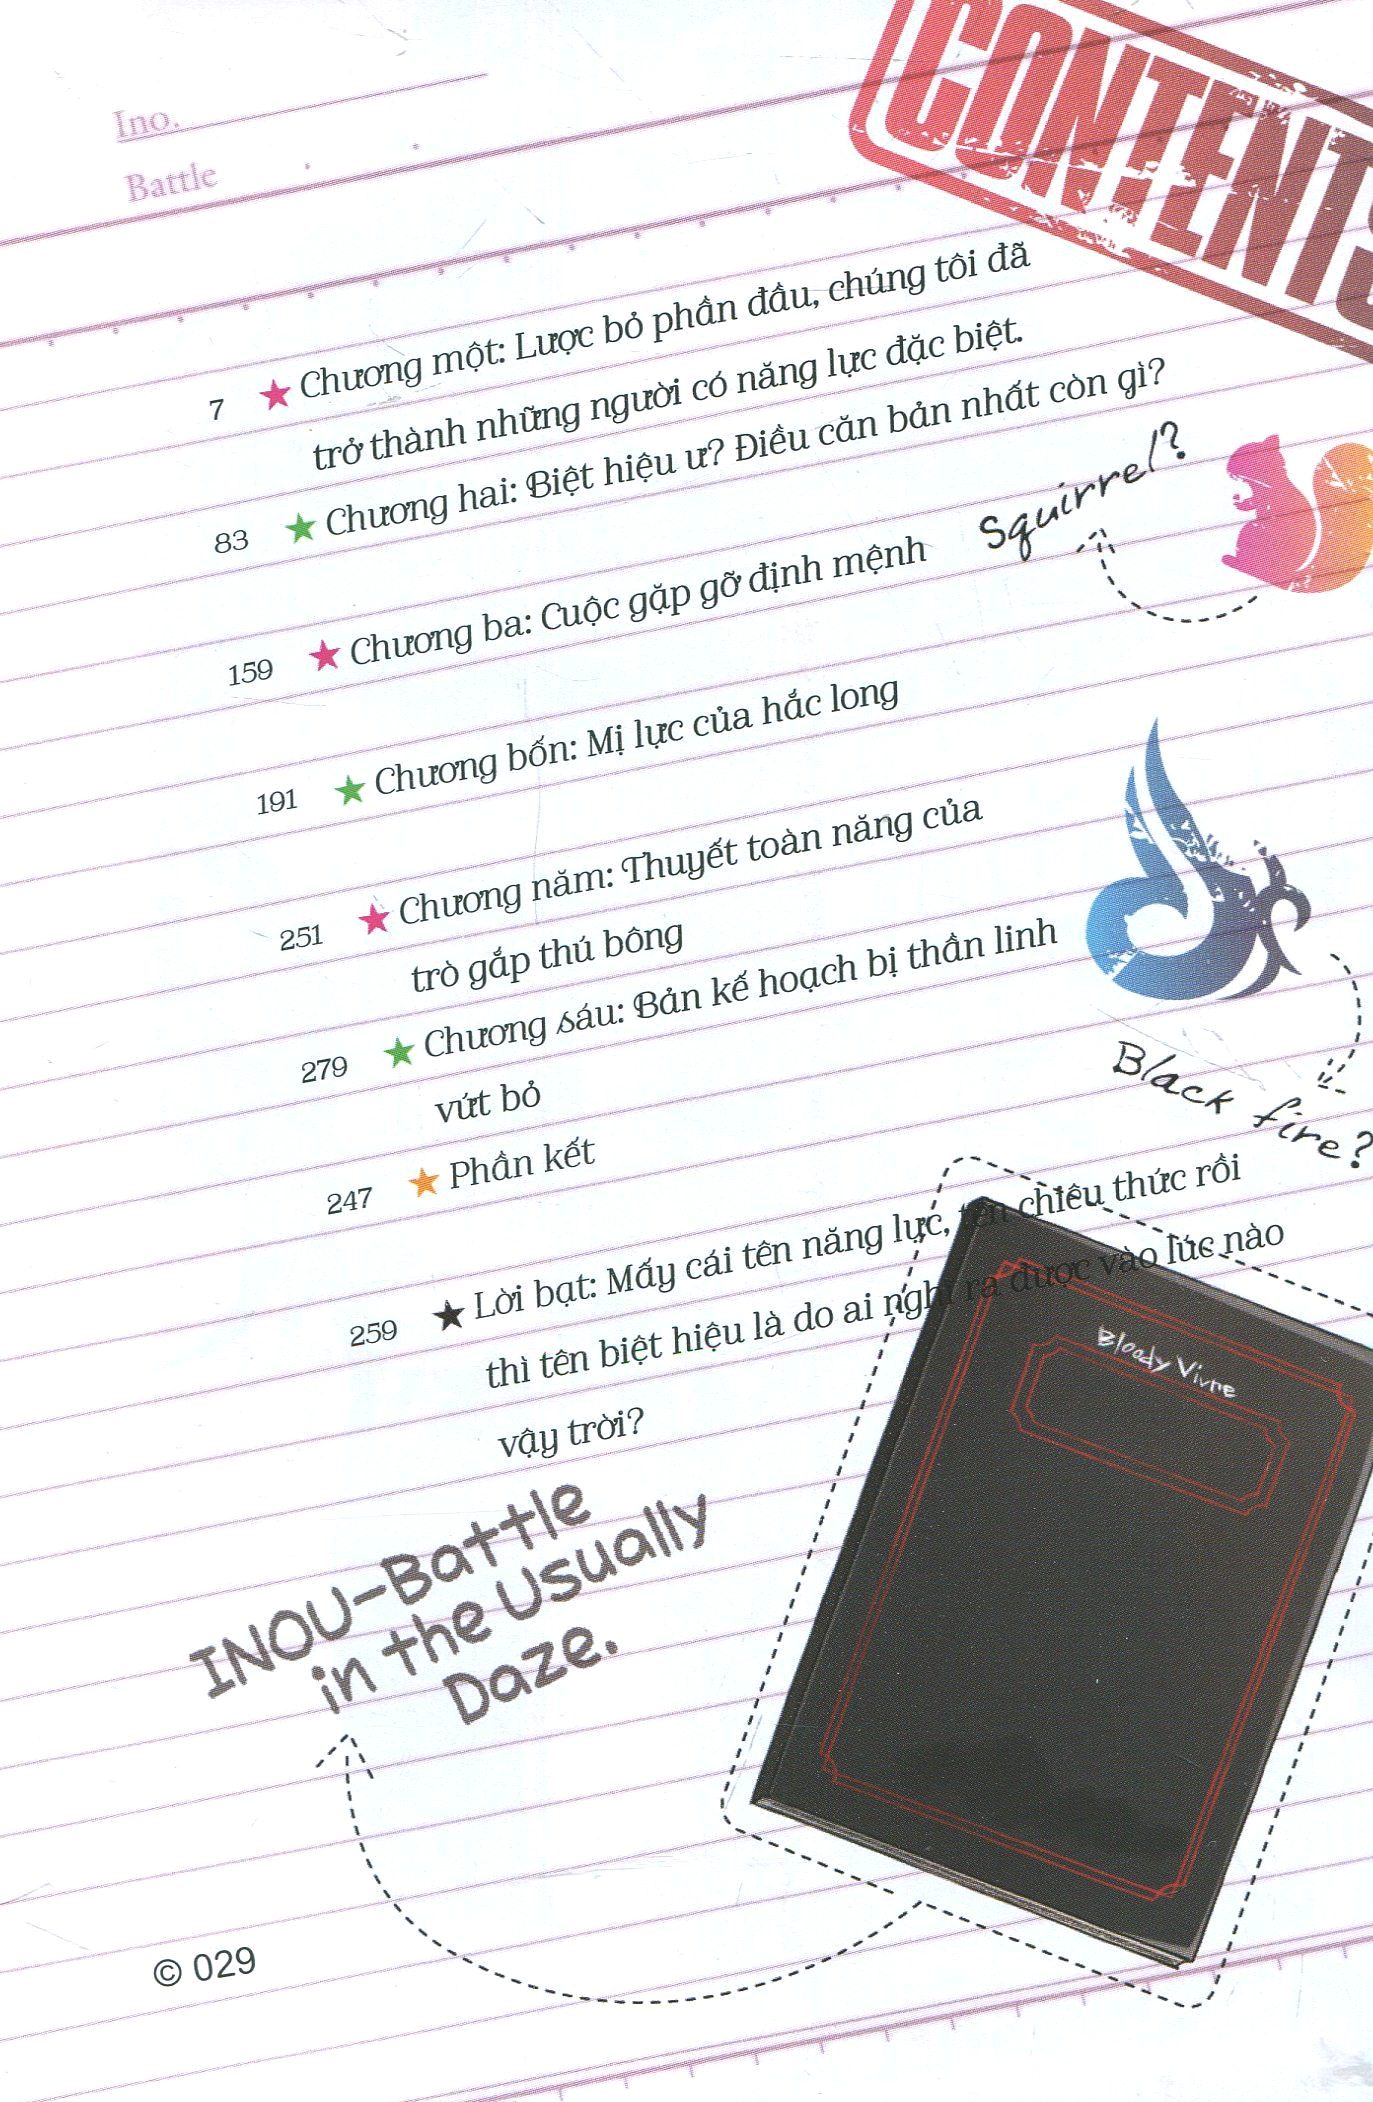 CONTENTS
Ino.
Battle
7 ★ Chương một: Lược bỏ phần đầu, chúng tôi đã
trở thành những người có năng lực đặc biệt.
83 ★ Chương hai: Biệt hiệu ư? Điều căn bản nhất còn gì?
Squirrel?
159 ★ Chương ba: Cuộc gặp gỡ định mệnh
191 ★ Chương bốn: Mị lực của hắc long
251 ★ Chương năm: Thuyết toàn năng của
trò gắp thú bông
279 ★ Chương sáu: Bản kế hoạch bị thần linh
vứt bỏ
Black fire?
247 ★ Phần kết
259 ★ Lời bạt: Mấy cái tên năng lực, tên chiêu thức rồi
thì tên biệt hiệu là do ai nghĩ ra được vào lúc nào
vậy trời?
Bloody Vivre
INOU-Battle
in the Usually
Daze.
© 029